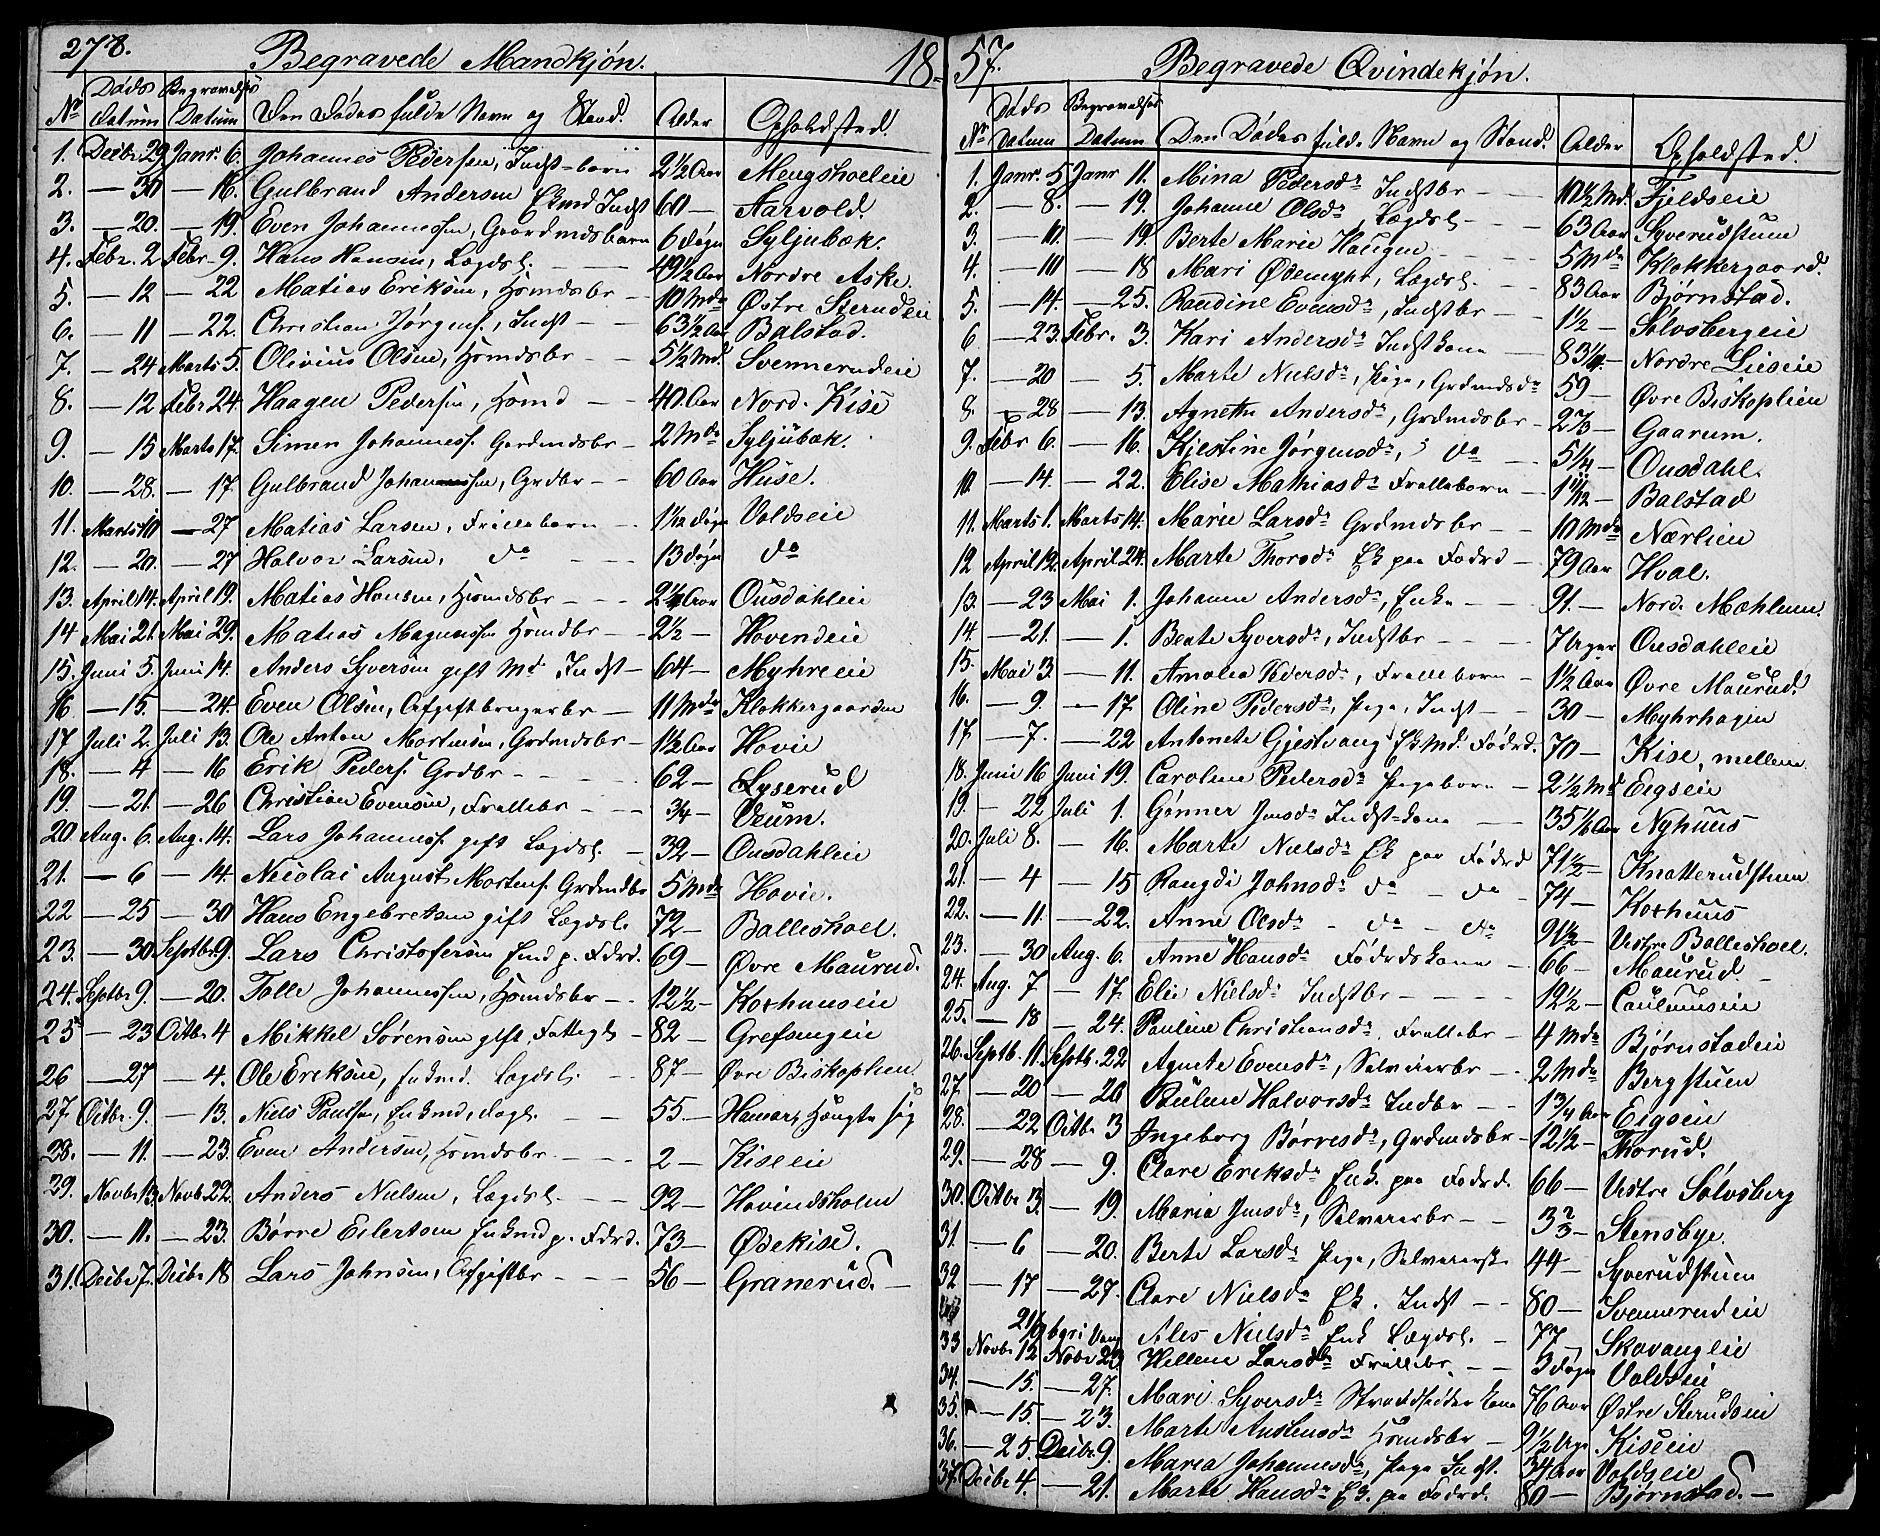 278. Begravede Mandkjøn. 18
No Døds Datum Begravelses Datum Den Dødes fulde Navn og Stand. Alder Opholdsted.
1. Decbr. 29 Janr. 6. Johannes Pedersen, Indst-barn 2 1/2 Aar Mengshoeleie
2. — 30 — 16. Gulbrand Andersen Ekmd Indst 60 — Aarvold.
3. — 20. — 19. Even Johannessen, Gaardmdsbarn 6 døgn Syljubæk.
4. Febr. 2 Febr. 9. Hans Hansen, Lægdsl. 49 1/2 Aar Nordre Aske.
5. — 12 — 22 Matias Eriksen, Hsmdsbr — 10 Mdr Østre Sterudeie
6. — 11 — 22. Christian Jørgens., Indst — 63 1/2 Aar Balstad.
7. — 24 Marts 5. Olivius Olsen, Hsmdsbr — 5 1/2 Md. Svennerudeie
8. — 12 Febr 24. Haagen Pedersen, Hsmd — 40 Aar Nord. Kise
9. — 15 Marts 17. Simen Johanness. Gardmdsbr — 2 Mdr Syljubæk.
10. — 28. — 17 Gulbrand Johannessen, Grdbr — 60 Aar Huse.
11. Marts 10 — 27 Matias Larsen, Frillebarn — 1 1/2 døgn Voldseie
12. — 20. — 27 Halvor Larsen, do — 13 døgn do
13. April 14. April 19. Matias Hansen, Hsmdsbr — 2 1/4 Aar Ousdahleie
14 Mai 21. Mai 29. Matias Magnussen Hsmdbr — 2 1/2 — Hovendeie
15. Juni 5. Juni 14. Anders Syversen gift Md Indst — 64 — Myhreeie
16 — 15. — 24. Even Olsen, Afgiftbrugerbr — 11 Mdr Klokkergaarden
17 Juli 2. Juli 13. Ole Anton Mortensen, Grdmdsbr — 1 1/2 Aar Hovie
18. — 4 — 16 Erik Peders. Grdbr — 62 — Lyserud
19. — 21. — 26 Christian Evensen, Frillebr — 3/4 — Veum.
20. Aug. 6. Aug. 14. Lars Johanness. gift Lægdsl. — 32 — Ousdahleie
21. — 6 — 14. Nicolai August Mortens. Grdmdbr 5 Mdr Hovie.
22 — 25 — 30 Hans Engebretsen gift Lægdsl. 72 — Balleshoel.
23. — 30. Septbr. 9. Lars Christofersen Emd p. Fdrd. 69 — Øvre Maurud.
24. Septbr 9. — 20. Tolle Johannessen, Hsmdsbr — 12 1/2 — Korhuuseie
25 — 23 Octbr. 4 Mikkel Sørensen gift Fattigl — 82 — Grefsengeie
26 — 27 — 4. Ole Eriksen, Enkmd. Lægdsl. — 87 — Øvre Biskoplien
27 Octbr. 9. — 13. Niels Paulsen, Enkmd, dagl. — 55. — Hamar, hængte sig
28. — 11. — 23. Even Andersen, Hsmdsbr. — 2 — Kiseeie
29. Novbr 13. Novbr. 22. Anders Nielsen, Lægdsl. — 92 — Hovindsholm
30. — 11. — 23. Børre Eilertsen Enkmd p. Fdrd. 73 — Ødekise.
31. Decbr 7. Decbr 18 Lars Johnsen, Afgiftbr — 56 — Granerud. —
57. Begravede Qvindekjøn.
No Døds Datum Begravelses Datum Den Dødes fulde Navn og Stand. Alder Opholdsted.
1. Janr. 5 Janr 11. Mina Pedersdr Indstbr — 10 1/2 Md. Fjeldseie
2. — 8. — 19. Johanne Olsdr, Lægdsl — 63 Aar Syverudstuen
3. — 10. — 19. Berte Marie Haugen — 5 Mdr Klokkergaard.
4. — 10 — 18 Mari Ødemyhr, Lægdsl. — 83 Aar Bjørnstad.
5. — 14. — 25. Randine Evensdr, Indstbr — 1 1/2 — Sølvsbergeie
6. — 23. Febr. 3. Kari Andersdr Indstkone — 83 1/4 — Nordre Lieseie
7. — 20 — 5. Marte Nielsdr, Pige, Grdmdsdr 59 — Øvre Biskoplien
8. — 28 — 13. Agnethe Andersdr, Grdmdsbr — 2 2/3 — Gaarum.
9. Febr 6. — 16. Kjestine Jørgensdr, do — 5 1/4 — Ousdahl.
10. — 14. — 22. Elise Mathiasdr Frillebarn — 1 1/12 — Balstad
11. Marts 1. Marts 14. Marie Larsdr Grdmdsbr — 10 Mdr Nærlien
12 April 12. April 24. Marte Thorsdr Ek paa Fødrd — 79 Aar Hval.
13. — 23 Mai 1. Johanne Andersdr, Enke — 91. — Nord. Mæhlum.
14. — 21. — 1. Beate Syversdr, Indstbr — 7 Uger Ousdahleie
15. Mai 3. — 11. Amalia Pedersdr, Frillebarn — 1 1/2 Aar Øvre Maurud.
16. — 9. — 17 Oline Pedersdr, Pige, Indst — 30 — Myhrhagen
17. — 7. — 22 Antonete Gjestvang Ek Md. Fødrd. 70 — Kise, mellem
18. Juni 16 Juni 19. Caroline Pedersdr Pigebarn — 2 1/2 Md Eigseie
19. — 22 Juli 1. Gønner Jensdr Indst-kone — 35 1/6 Aar Nyhuus
20. Juli 8. — 16. Marte Nielsdr Ek paa Fødrd 71 1/2 — Knatterudstuen
21. — 4 — 15 Rangdi Johnsdr do — do — 74 — Korhuus
22. — 11. — 22. Anne Olsdr — do — do 91 1/2 — Vestre Balleshoel.
23. — 30 Aug. 6. Anne Hansdr Fødrdskone — 66 — Maurud —
24. Aug. 7 — 17. Elie Nielsdr Indstbr — 12 1/2 —
25. — 18 — 24. Pauline Christiansdr, Frillebr — 4 Mdr Bjørnstadeie
26. Septb. 11. Septb. 22 Agnete Evensdr, Selveierbr — 2 Mdr Bergstuen
27 — 20 — 26 Pauline Halvorsdr Indbr — 1 3/4 Aar Eigseie
28. — 22 Octbr 3 Ingeborg Børresdr, Grdmdsbr — 12 1/2 — Thorud.
29. — 28 — 9. Clare Eriksdr Enk. paa Fødrd. 66 — Vestre Sølvsberg
30. Octbr 3. — 19. Maria Jensdr, Selveierbr — 3 2/3 — Stensbye.
31. — 6 — 20. Berte Larsdr Pige, Selveierst. 44 — Syverudstuen
32 — 17 — 27. Clare Nielsdr Ek. Indst — 80 — Svennerudeie
21/9 bgr i Vang Ales Nielsdr Enk Lægdsl. — 77 — Skovangeie
33 Novbr 12 Novbr 23 Hellene Larsdr Frillebr — 3 døgn Voldseie
34. — 15. — 27. Mari Syversdr Strandsidder kone 76 Aar Østre Sterudeie
35. — 15. — 23. Marte Austensdr Hsmdsbr — 9 1/2 Uge Kiseeie
36. — 25. Decbr. 9. Maria Johannesdr, Pige Indst. 34 Aar Voldseie
37 Decbr 4. — 21. Marte Hansdr Ek. paa Fødrd. 80 — Bjørnstad. —